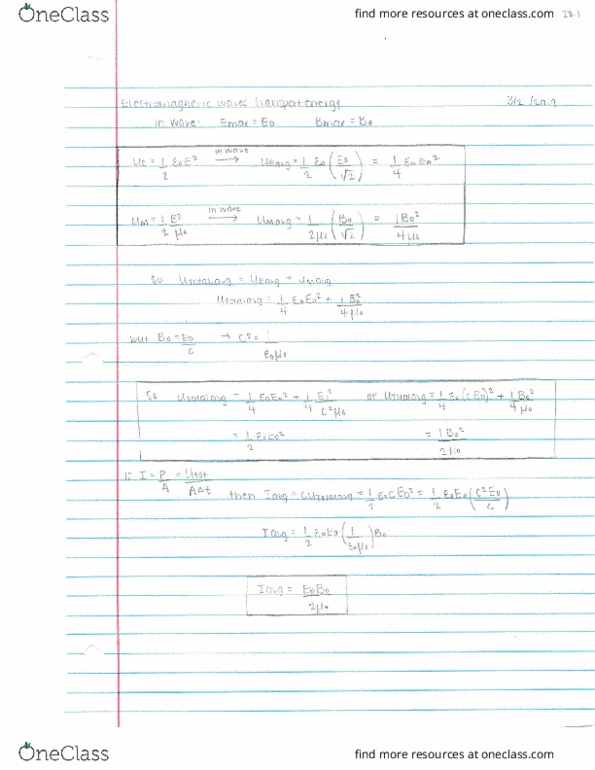 OneClass
find more resources at oneclass.com 28.1
Electromagnetic waves transport energy
in wave: Emax = E0 Bmax = B0
UE = 1/2 ε0E² in wave → UEavg = 1/2 ε0 (E0/√2) = 1/4 ε0E0²
UM = 1/2 B²/μ0 in wave → UMavg = 1/2μ0 (B0/√2) = 1B0²/4μ0
So Utotal,avg = UEavg + UMavg
Utotal,avg = 1/4 ε0E0² + 1/4 B0²/μ0
but B0 = E0/c → c² = 1/ε0μ0
So Utotal,avg = 1/4 ε0E0² + 1/4 E0²/c²μ0 or Utotal,avg = 1/4 ε0(cE0)² + 1B0²/4μ0
= 1/2 ε0E0² = 1B0²/2μ0
if I = P/A = Utot/AΔt
then Iavg = cUtotal,avg = 1/2 ε0cE0² = 1/2 ε0E0 (c²E0/c)
Iavg = 1/2 ε0E0 (1/ε0μ0) B0
Iavg = E0B0/2μ0
OneClass
find more resources at oneclass.com